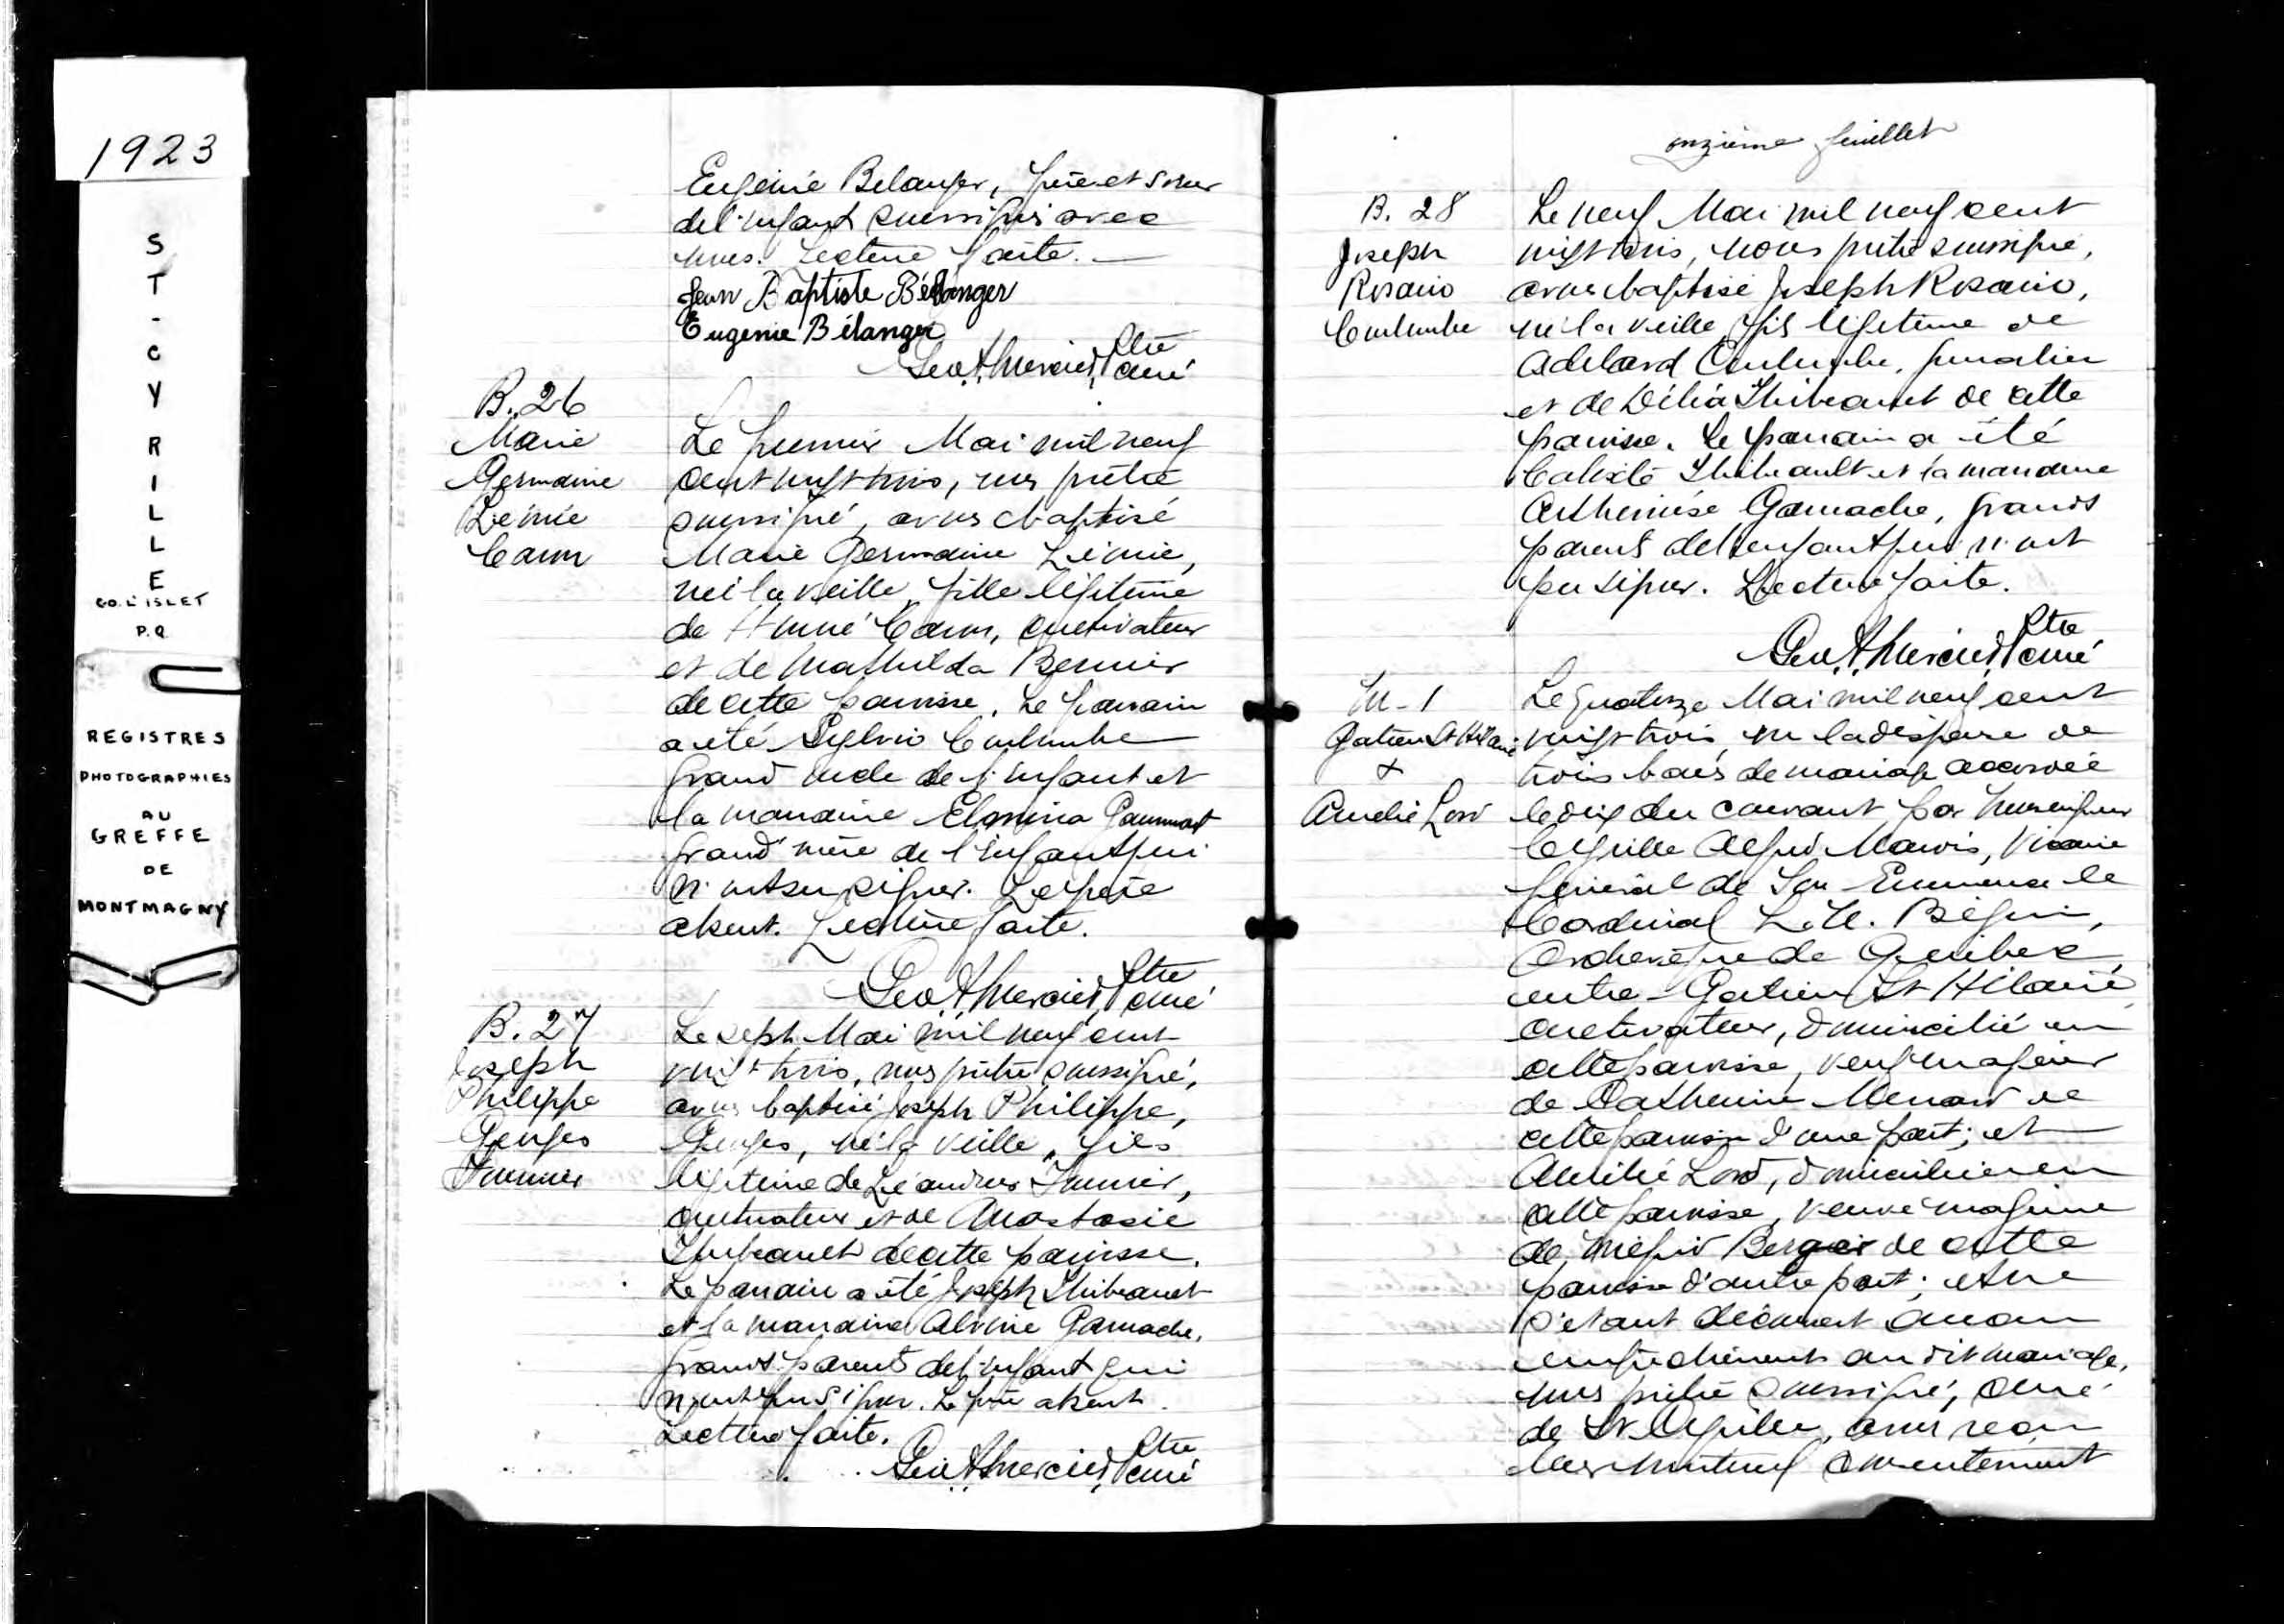 1923
ST-CYRILLE
CO. L'ISLET
P.Q.
REGISTRES
PHOTOGRAPHIES
AU
GREFFE
DE
MONTMAGNY
Eugénie Belanger, frère et soeur
de l'enfant soussignés avec
nous. Lecture faite.
Jean Baptiste Bélanger
Eugenie Bélanger
Geo. A. Mercier, Ptre curé
B. 26
Marie
Germaine
Lémie
Caron
Le premier Mai mil neuf
cent vingt trois, nous prêtre
soussigné, avons baptisé
Marie Germaine Lémie,
née la veille, fille légitime
de Caron, cultivateur
et de Mathilda Bernier
de cette paroisse. Le parrain
a été Sylvio Coulombe
grand oncle de l'enfant et
la marraine Elmina
grand'mère de l'enfant qui
n'ont su signer. Le père
absent. Lecture faite.
Geo. A. Mercier, Ptre curé
B. 27
Joseph
Philippe
Georges
Fournier
Le sept Mai mil neuf cent
vingt trois, nous prêtre soussigné,
avons baptisé Joseph Philippe,
Georges, né la veille, fils
légitime de Léandre Fournier,
cultivateur et de Anastasie
Thibeault de cette paroisse.
Le parrain a été Joseph Thibeault
et la marraine Alvine Gamache,
grands parents de l'enfant qui
n'ont pu signer. Le père absent.
Lecture faite.
Geo. A. Mercier, Ptre curé
onzième feuillet
B. 28
Joseph
Rosario
Coulombe
Le neuf Mai mil neuf cent
vingt trois, nous prêtre soussigné,
avons baptisé Joseph Rosario,
né la veille, fils légitime de
Adelard Coulombe, journalier
et de Délia Thibeault de cette
paroisse. Le parrain a été
Calixte Thibeault et la marraine
Arthémise Gamache, grands
parents de l'enfant qui n'ont
pu signer. Lecture faite.
Geo. A. Mercier, Ptre curé
M-1
Gatien St Hilaire
&
Amelie Lord
Le quatorze Mai mil neuf cent
vingt trois, vu la dispense de
trois bans de mariage accordée
le dix du courant par Monseigneur
Cyrille Alfred Marois, Vicaire
général de Son Eminence le
Cardinal L. N. Bégin,
Archevêque de Québec,
entre Gatien St Hilaire
cultivateur, domicilié en
cette paroisse, veuf majeur
de Catherine Menard de
cette paroisse d'une part; et
Amélie Lord, domiciliée en
cette paroisse, veuve majeure
de Bergeir de cette
paroisse d'autre part; et ne
s'étant découvert aucun
empêchement au dit mariage,
nous prêtre soussigné, curé
de St Cyrille, avons reçu
leur mutuel consentement